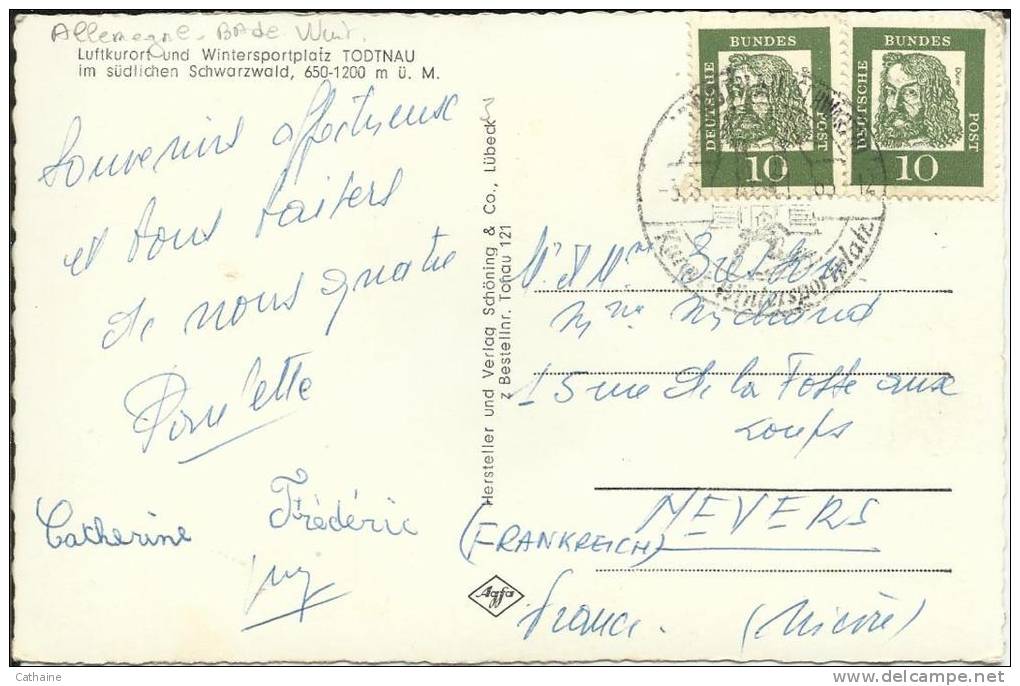 Allemagne - Bade Wurt.
Luftkurort und Wintersportplatz TODTNAU
im südlichen Schwarzwald, 650-1200 m ü. M.
Souvenirs affectueux
et bons baisers
de nous quatre
Paulette
Catherine
Frédéric
Hersteller und Verlag Schöning & Co., Lübeck
z Bestellnr. Tonau 121
Agfa
DEUTSCHE BUNDES POST
10
DEUTSCHE BUNDES POST
10
Dürer
Kur- u. Wintersportplatz
M. et Mme
Mme Michond
15 rue de la Fosse aux
Loups
NEVERS
(FRANKREICH)
France. (Nièvre)
Cathaine
delcampe.net